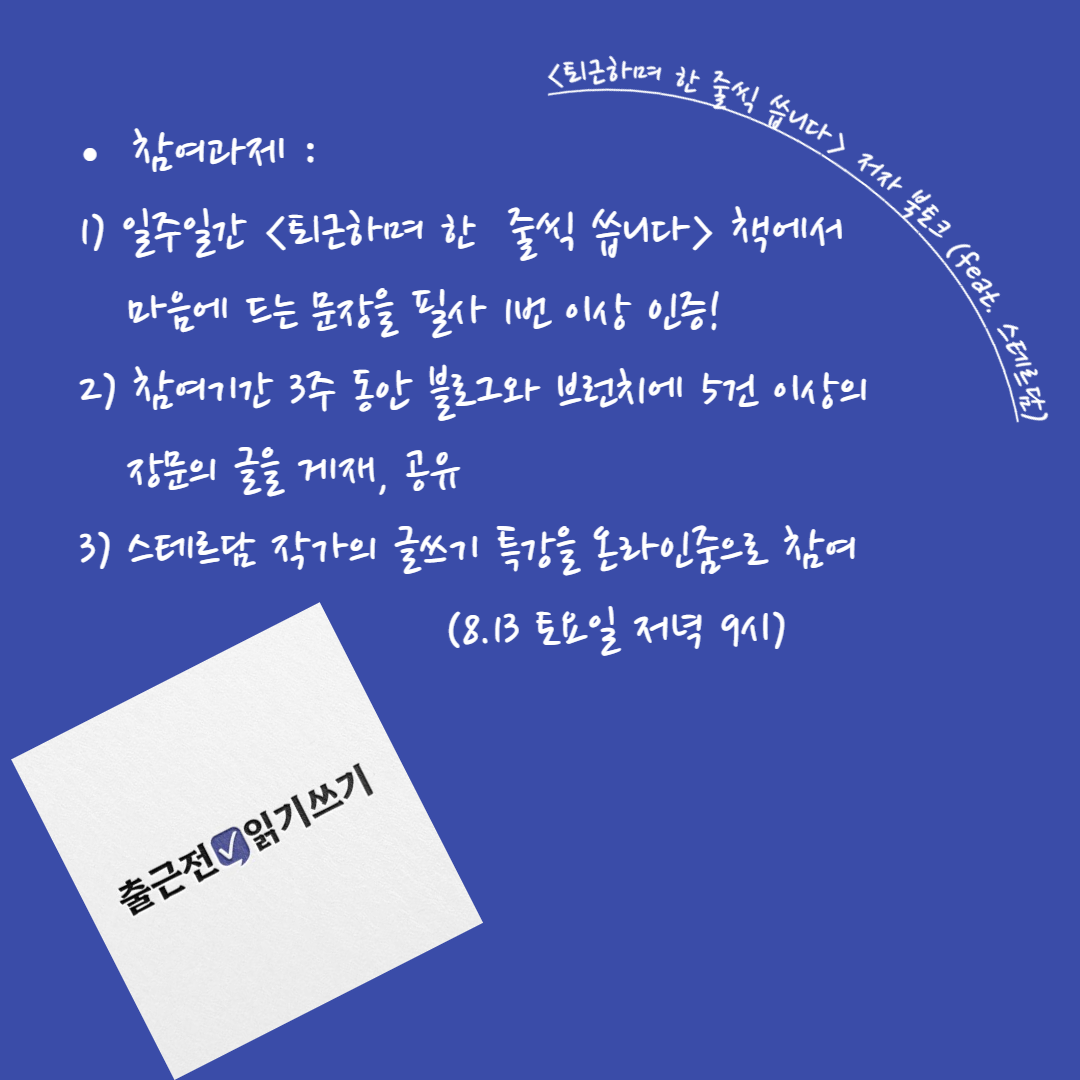 <퇴근하며 한 줄씩 씁니다> 저자 북토크 (feat. 스테르담)
• 참여과제 :
1) 일주일간 <퇴근하며 한 줄씩 씁니다> 책에서
마음에 드는 문장을 필사 1번 이상 인증!
2) 참여기간 3주 동안 블로그와 브런치에 5건 이상의
장문의 글을 게재, 공유
3) 스테르담 작가의 글쓰기 특강을 온라인줌으로 참여
(8.13 토요일 저녁 9시)
출근전읽기쓰기